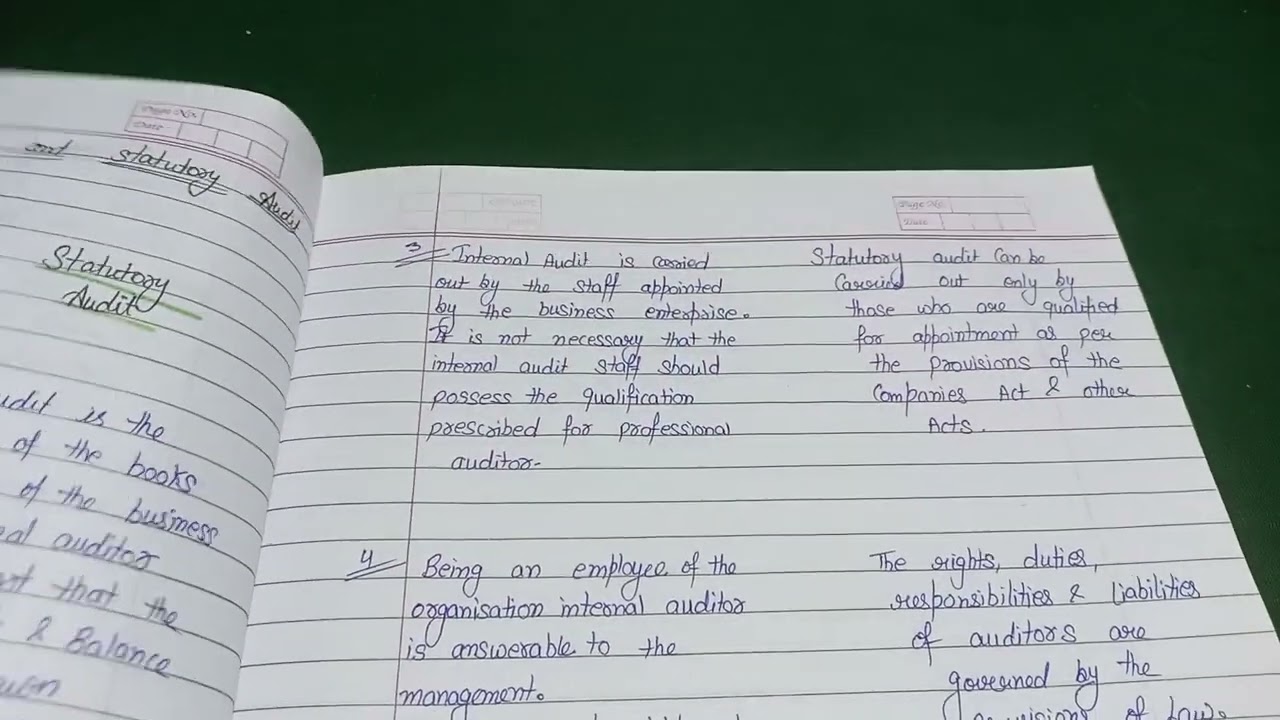 Page No.
Date
and statutory Audit
Statutory
Audit
udit is the
of the books
of the business
al auditor
that the
& Balance
Page No.
Date
3 Internal Audit is carried
out by the staff appointed
by the business enterprise.
It is not necessary that the
internal audit staff should
possess the qualification
prescribed for professional
auditor-
Statutory audit can be
Carried out only by
those who are qualified
for appointment as per
the provisions of the
Companies Act & other
Acts.
4 Being an employee of the
organisation internal auditor
is answerable to the
management.
The rights, duties,
responsibilities & liabilities
of auditors are
governed by the
provisions of laws